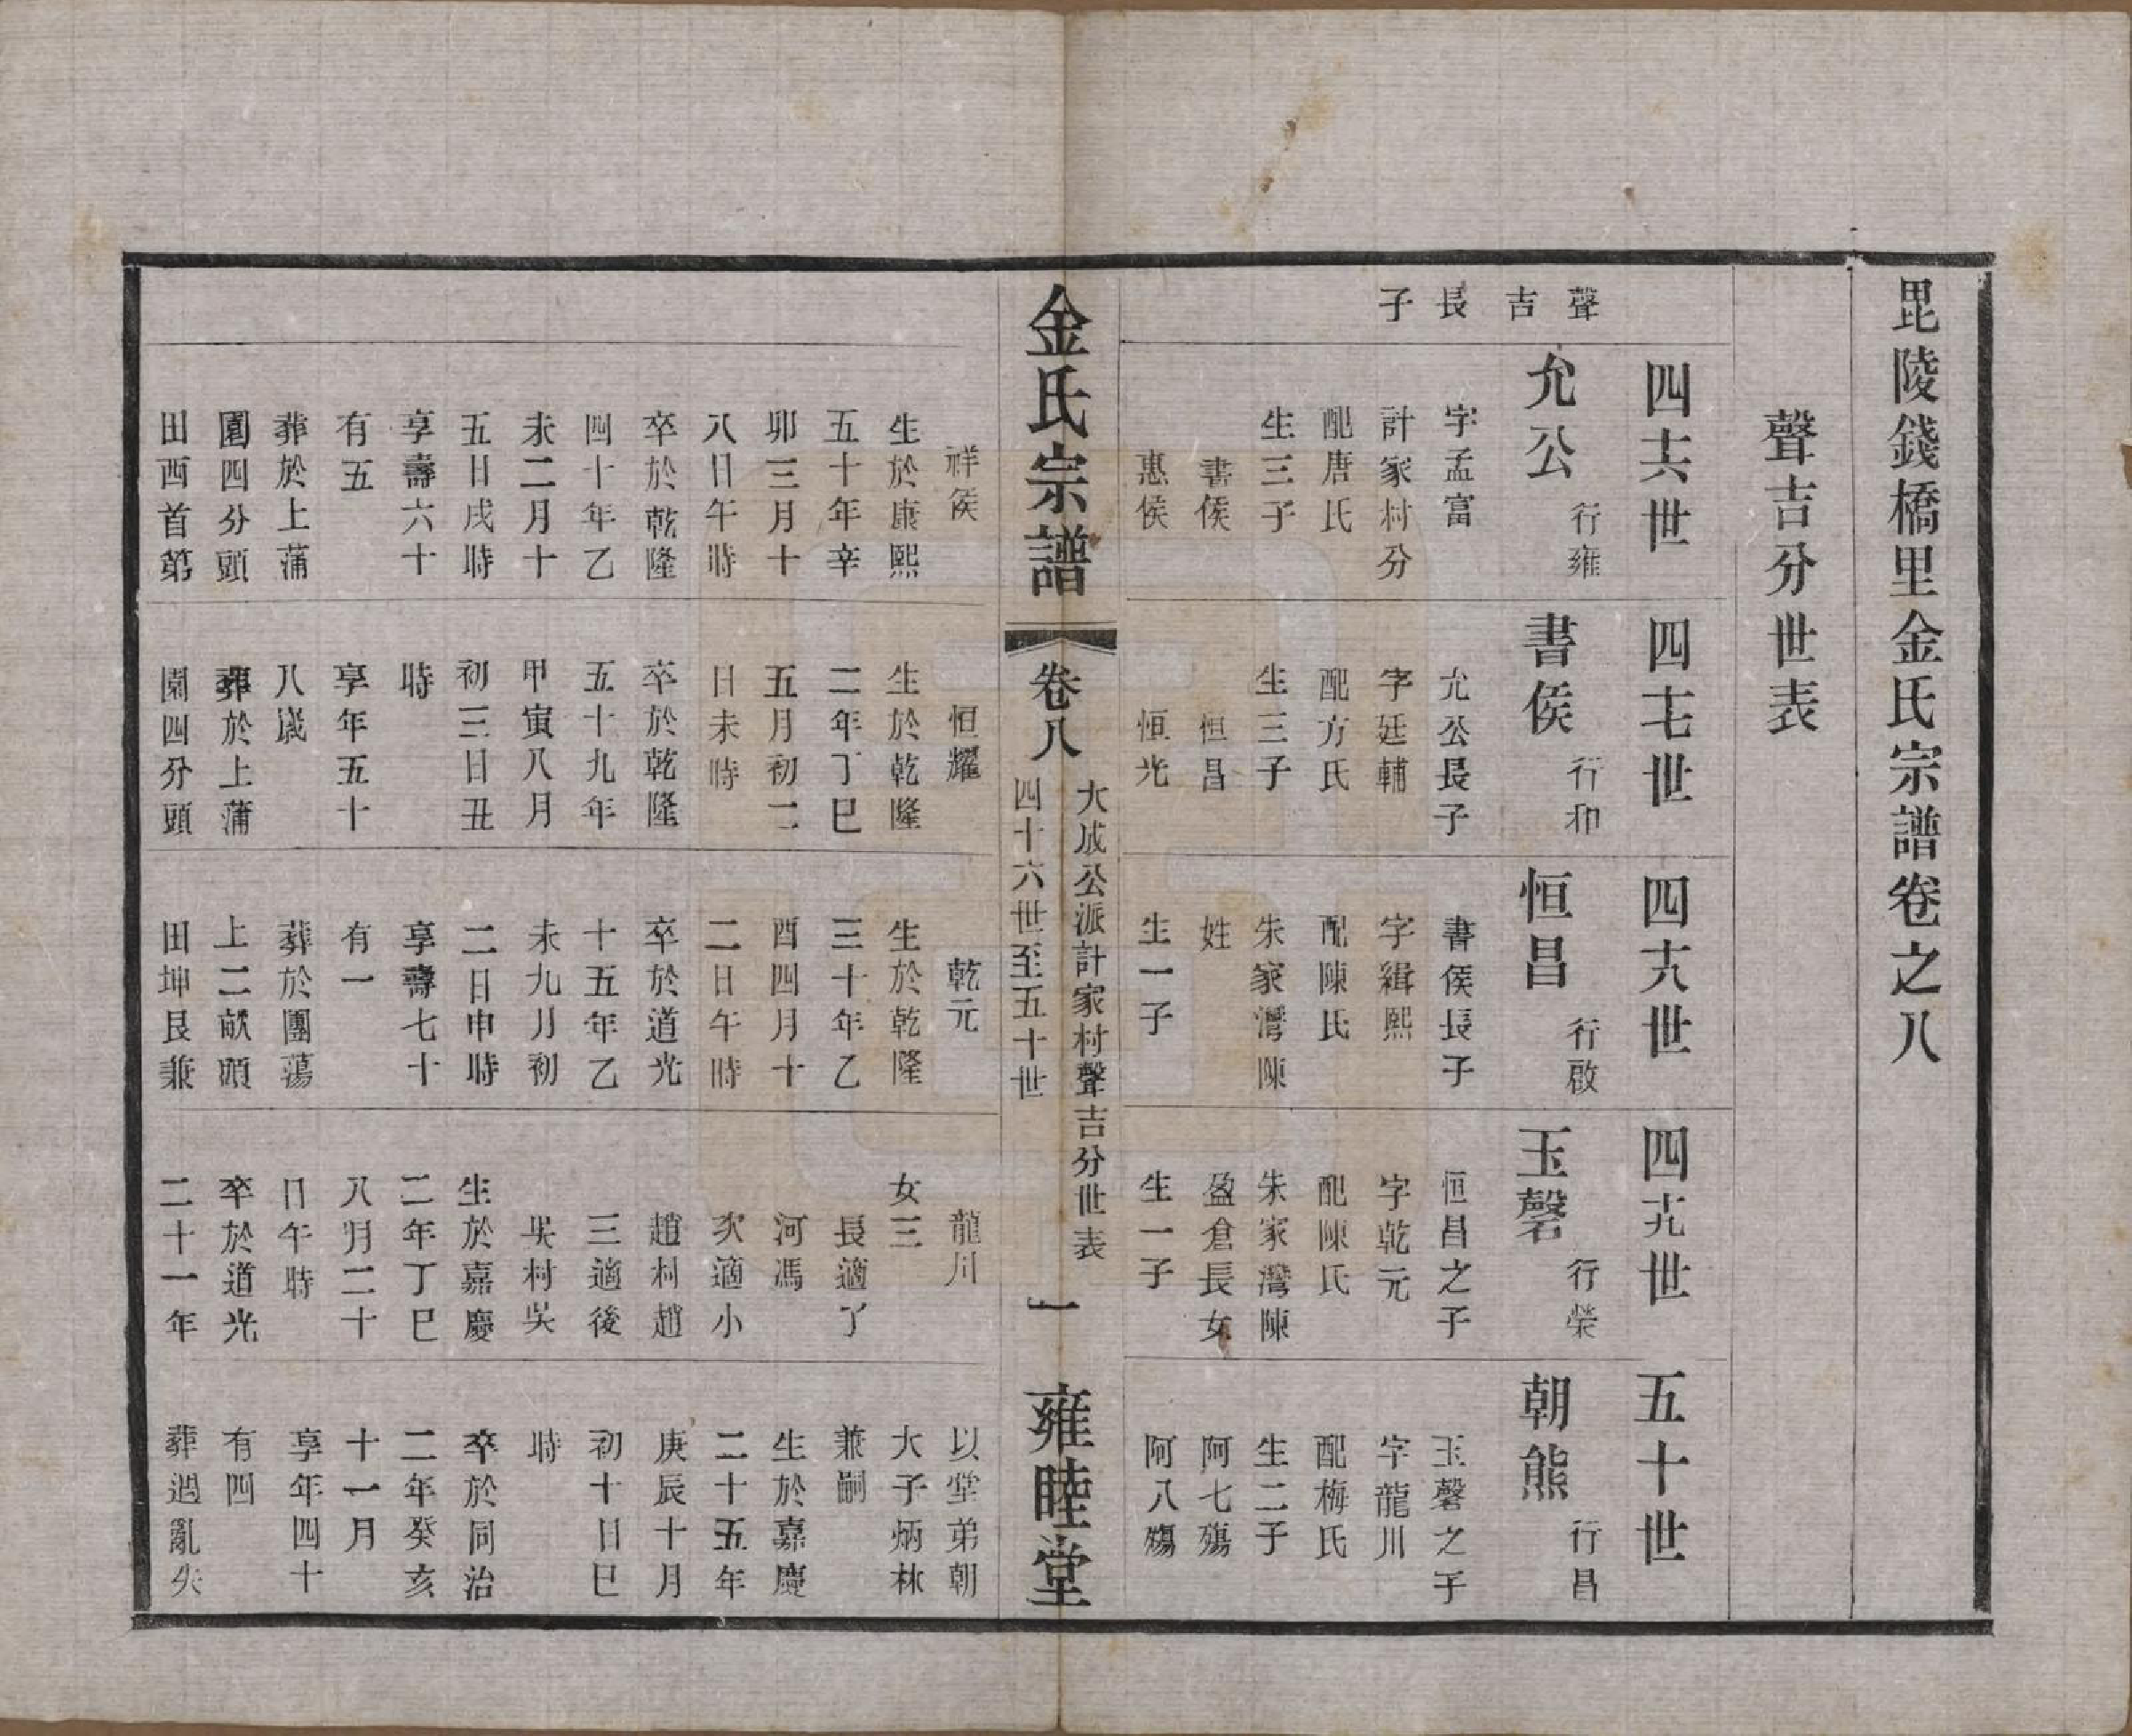 毘陵錢橋里金氏宗譜卷之八
聲吉分世表
四十六世
四十七世
四十八世
四十九世
五十世
聲吉長子
允公 行雍
字孟富
計家村分
配唐氏
生三子
書侯
惠侯
書侯 行和
允公長子
字廷輔
配方氏
生三子
恒昌
恒光
恒昌 行啟
書侯長子
字緝熙
配陳氏
朱家灣陳
姓
生一子
玉磬 行榮
恒昌之子
字乾元
配陳氏
朱家灣陳
盈倉長女
生一子
朝熊 行昌
玉磬之子
字龍川
配梅氏
生二子
阿七殤
阿八殤
金氏宗譜
卷八
大成公派計家村聲吉分世表
四十六世至五十世
一
雍睦堂
祥侯
生於康熙
五十年辛
卯三月十
八日午時
卒於乾隆
四十年乙
未二月十
五日戌時
享壽六十
有五
葬於上蒲
圍四分頭
田西首第
恒耀
生於乾隆
二年丁巳
五月初二
日未時
卒於乾隆
五十九年
甲寅八月
初三日丑
時
享年五十
八歲
葬於上蒲
圍四分頭
乾元
生於乾隆
三十年乙
酉四月十
二日午時
卒於道光
十五年乙
未九月初
二日申時
享壽七十
有一
葬於團蕩
上二畝頭
田坤艮兼
龍川
女三
長適丁
河馮
次適小
趙村趙
三適後
吳村吳
生於嘉慶
二年丁巳
八月二十
日午時
卒於道光
二十一年
以堂弟朝
大子炳林
兼嗣
生於嘉慶
二十五年
庚辰十月
初十日巳
時
卒於同治
二年癸亥
十一月
享年四十
有四
葬遇亂失